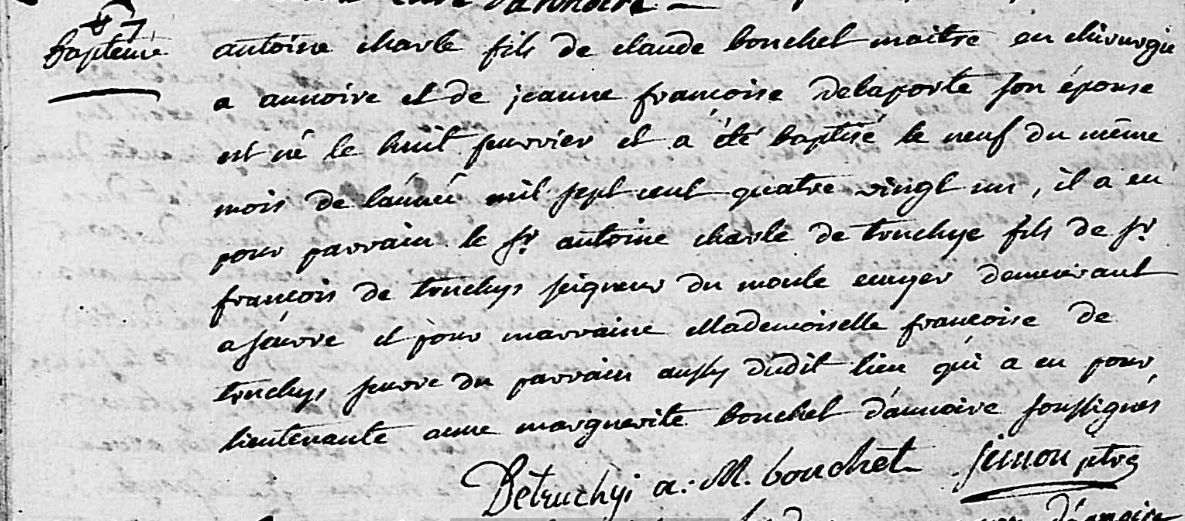 Baptême
antoine charle fils de claude bouchet maitre en chirurgie
a annoire et de jeanne françoise delaporte son épouse
est né le huit fevrier et a été baptisé le neuf du même
mois de lánnée mil sept cent quatre vingt un, il a eu
pour parrain le sr. antoine charle de truchye fils de sr.
françois de truchys seigneur du moule ecuyer demeurant
a seurre et pour marraine Mademoiselle françoise de
truchys seure du parrain aussy dudit lieu qui a eu pour
lieutenante anne marguerite bouchet d'annoire soussignés
Detruchyi a. M. bouchet simon ptre